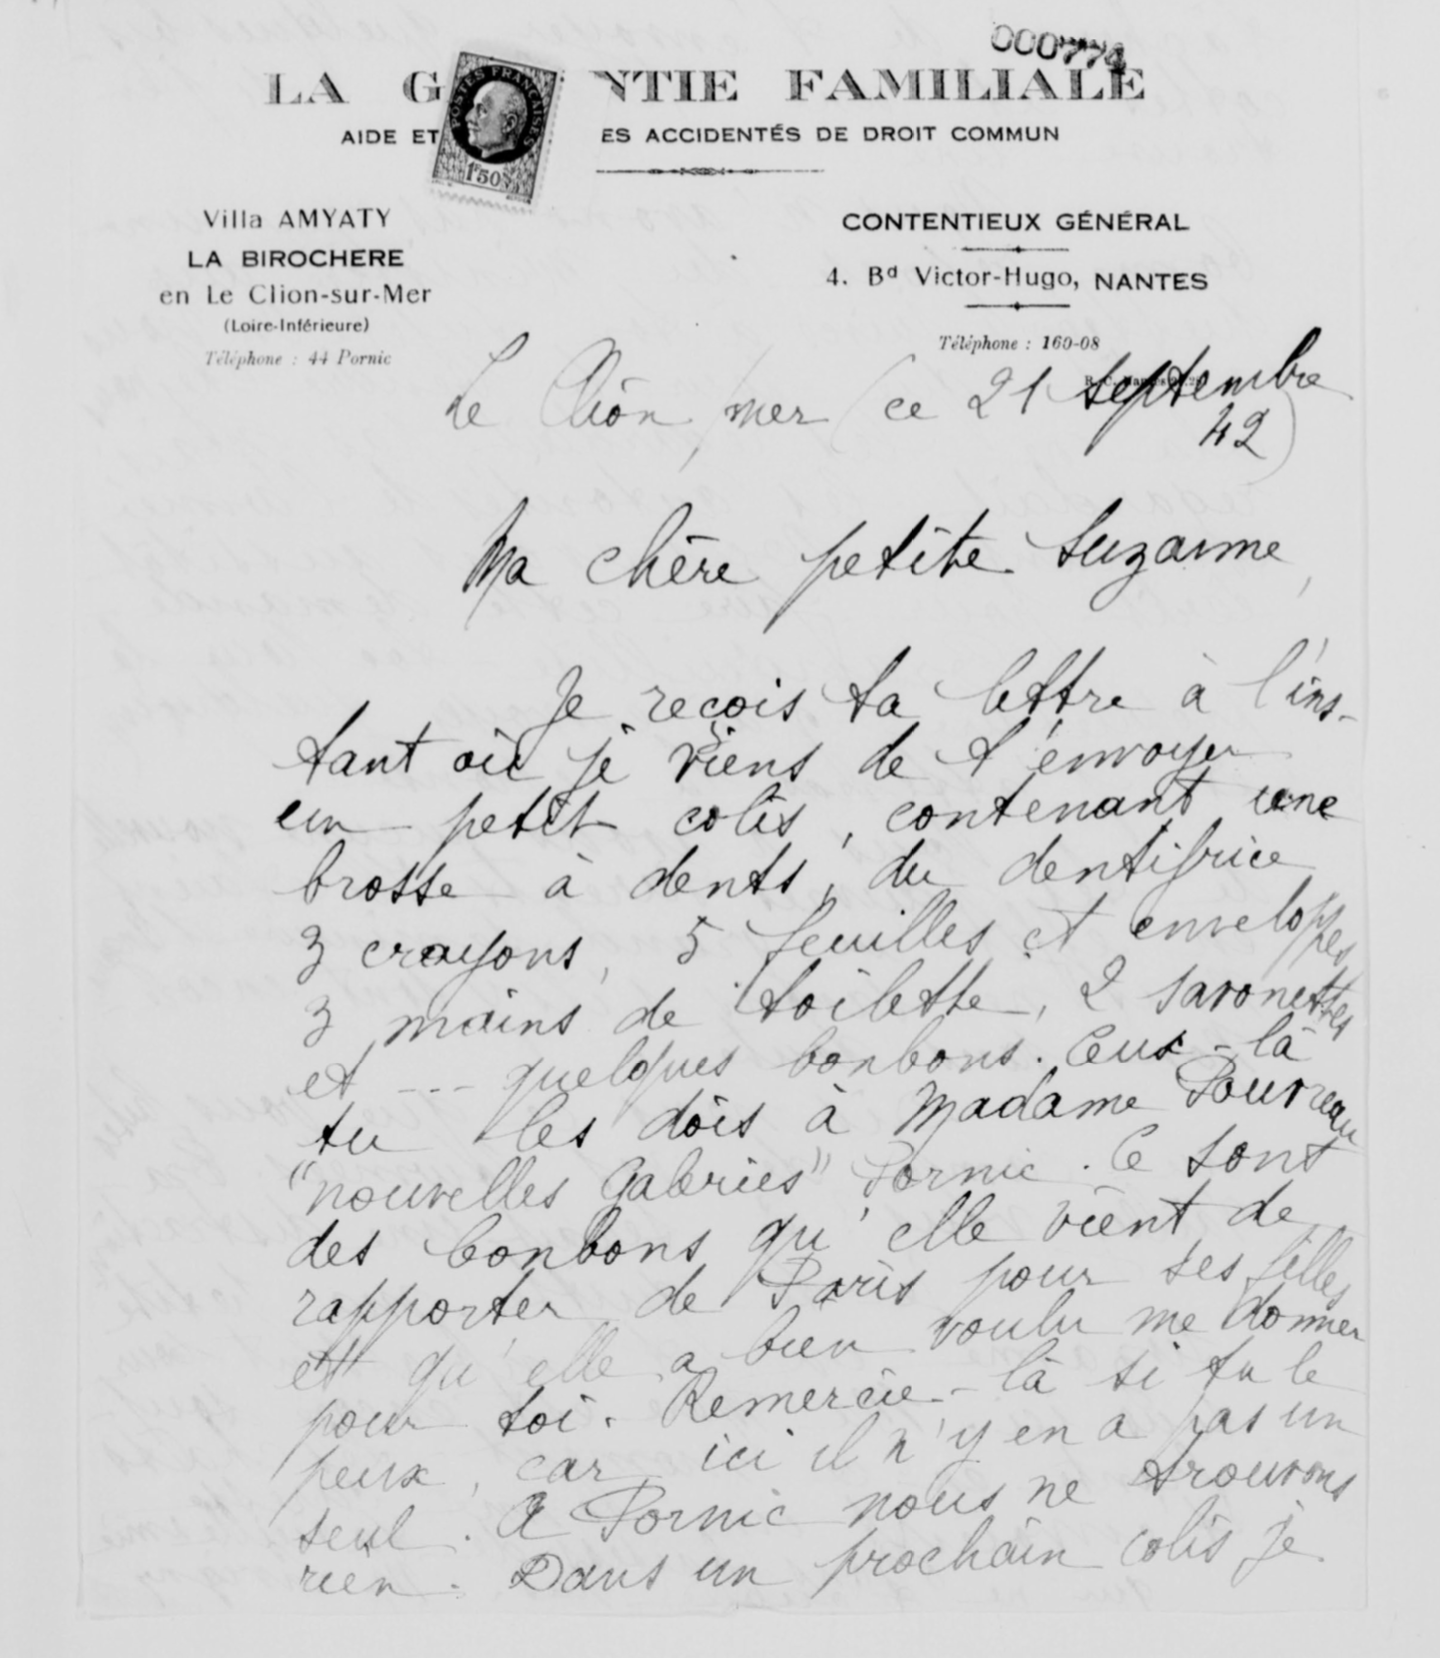 000774
LA G NTIE FAMILIALE
AIDE ET ES ACCIDENTÉS DE DROIT COMMUN
POSTES FRANÇAISES
1F50
Villa AMYATY
LA BIROCHERE
en Le Clion-sur-Mer
(Loire-Inférieure)
Téléphone : 44 Pornic
CONTENTIEUX GÉNÉRAL
4. Bd Victor-Hugo, NANTES
Téléphone : 160-08
Le Clion / mer (ce 21 septembre
42)
Ma chère petite Suzanne,
Je reçois ta lettre à l'ins-
tant où je viens de t'envoyer
un petit colis, contenant une
brosse à dents, du dentifrice
3 crayons, 5 feuilles et enveloppes
3 mains de toilette, 2 savonettes
et --- quelques bonbons. Ceux-là
tu les dois à Madame Pouvreau
"nouvelles Galeries" Pornic. Ce sont
des bonbons qu'elle vient de
rapporter de Paris pour ses filles
et qu'elle a bien voulu me donner
pour toi. Remercie-là si tu le
peux, car ici il n'y en a pas un
seul. A Pornic nous ne trouvons
rien. Dans un prochain colis je